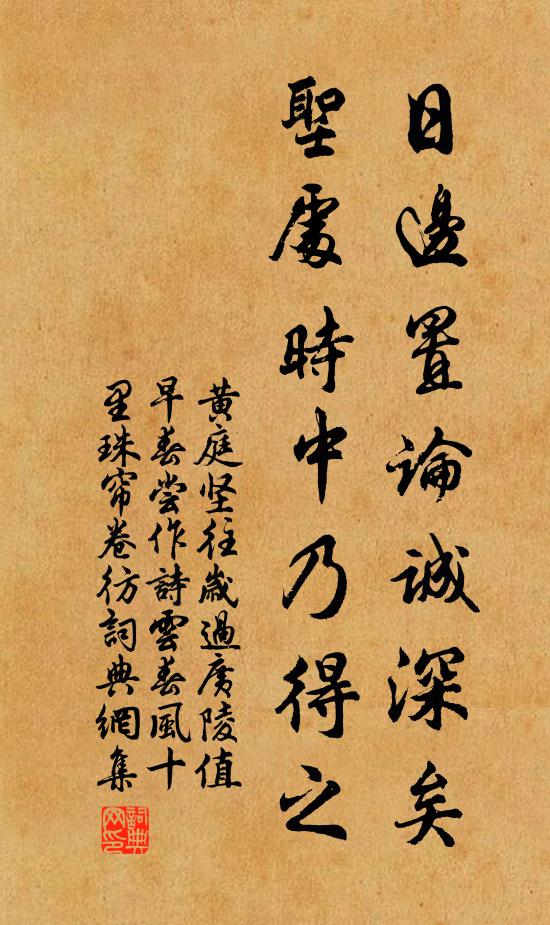 日邊置論誠深矣
聖處時中乃得之
黄庭坚往歲過廣陵值
早春嘗作詩雲春風十
里珠帘卷彷詞典網集
詞典网印